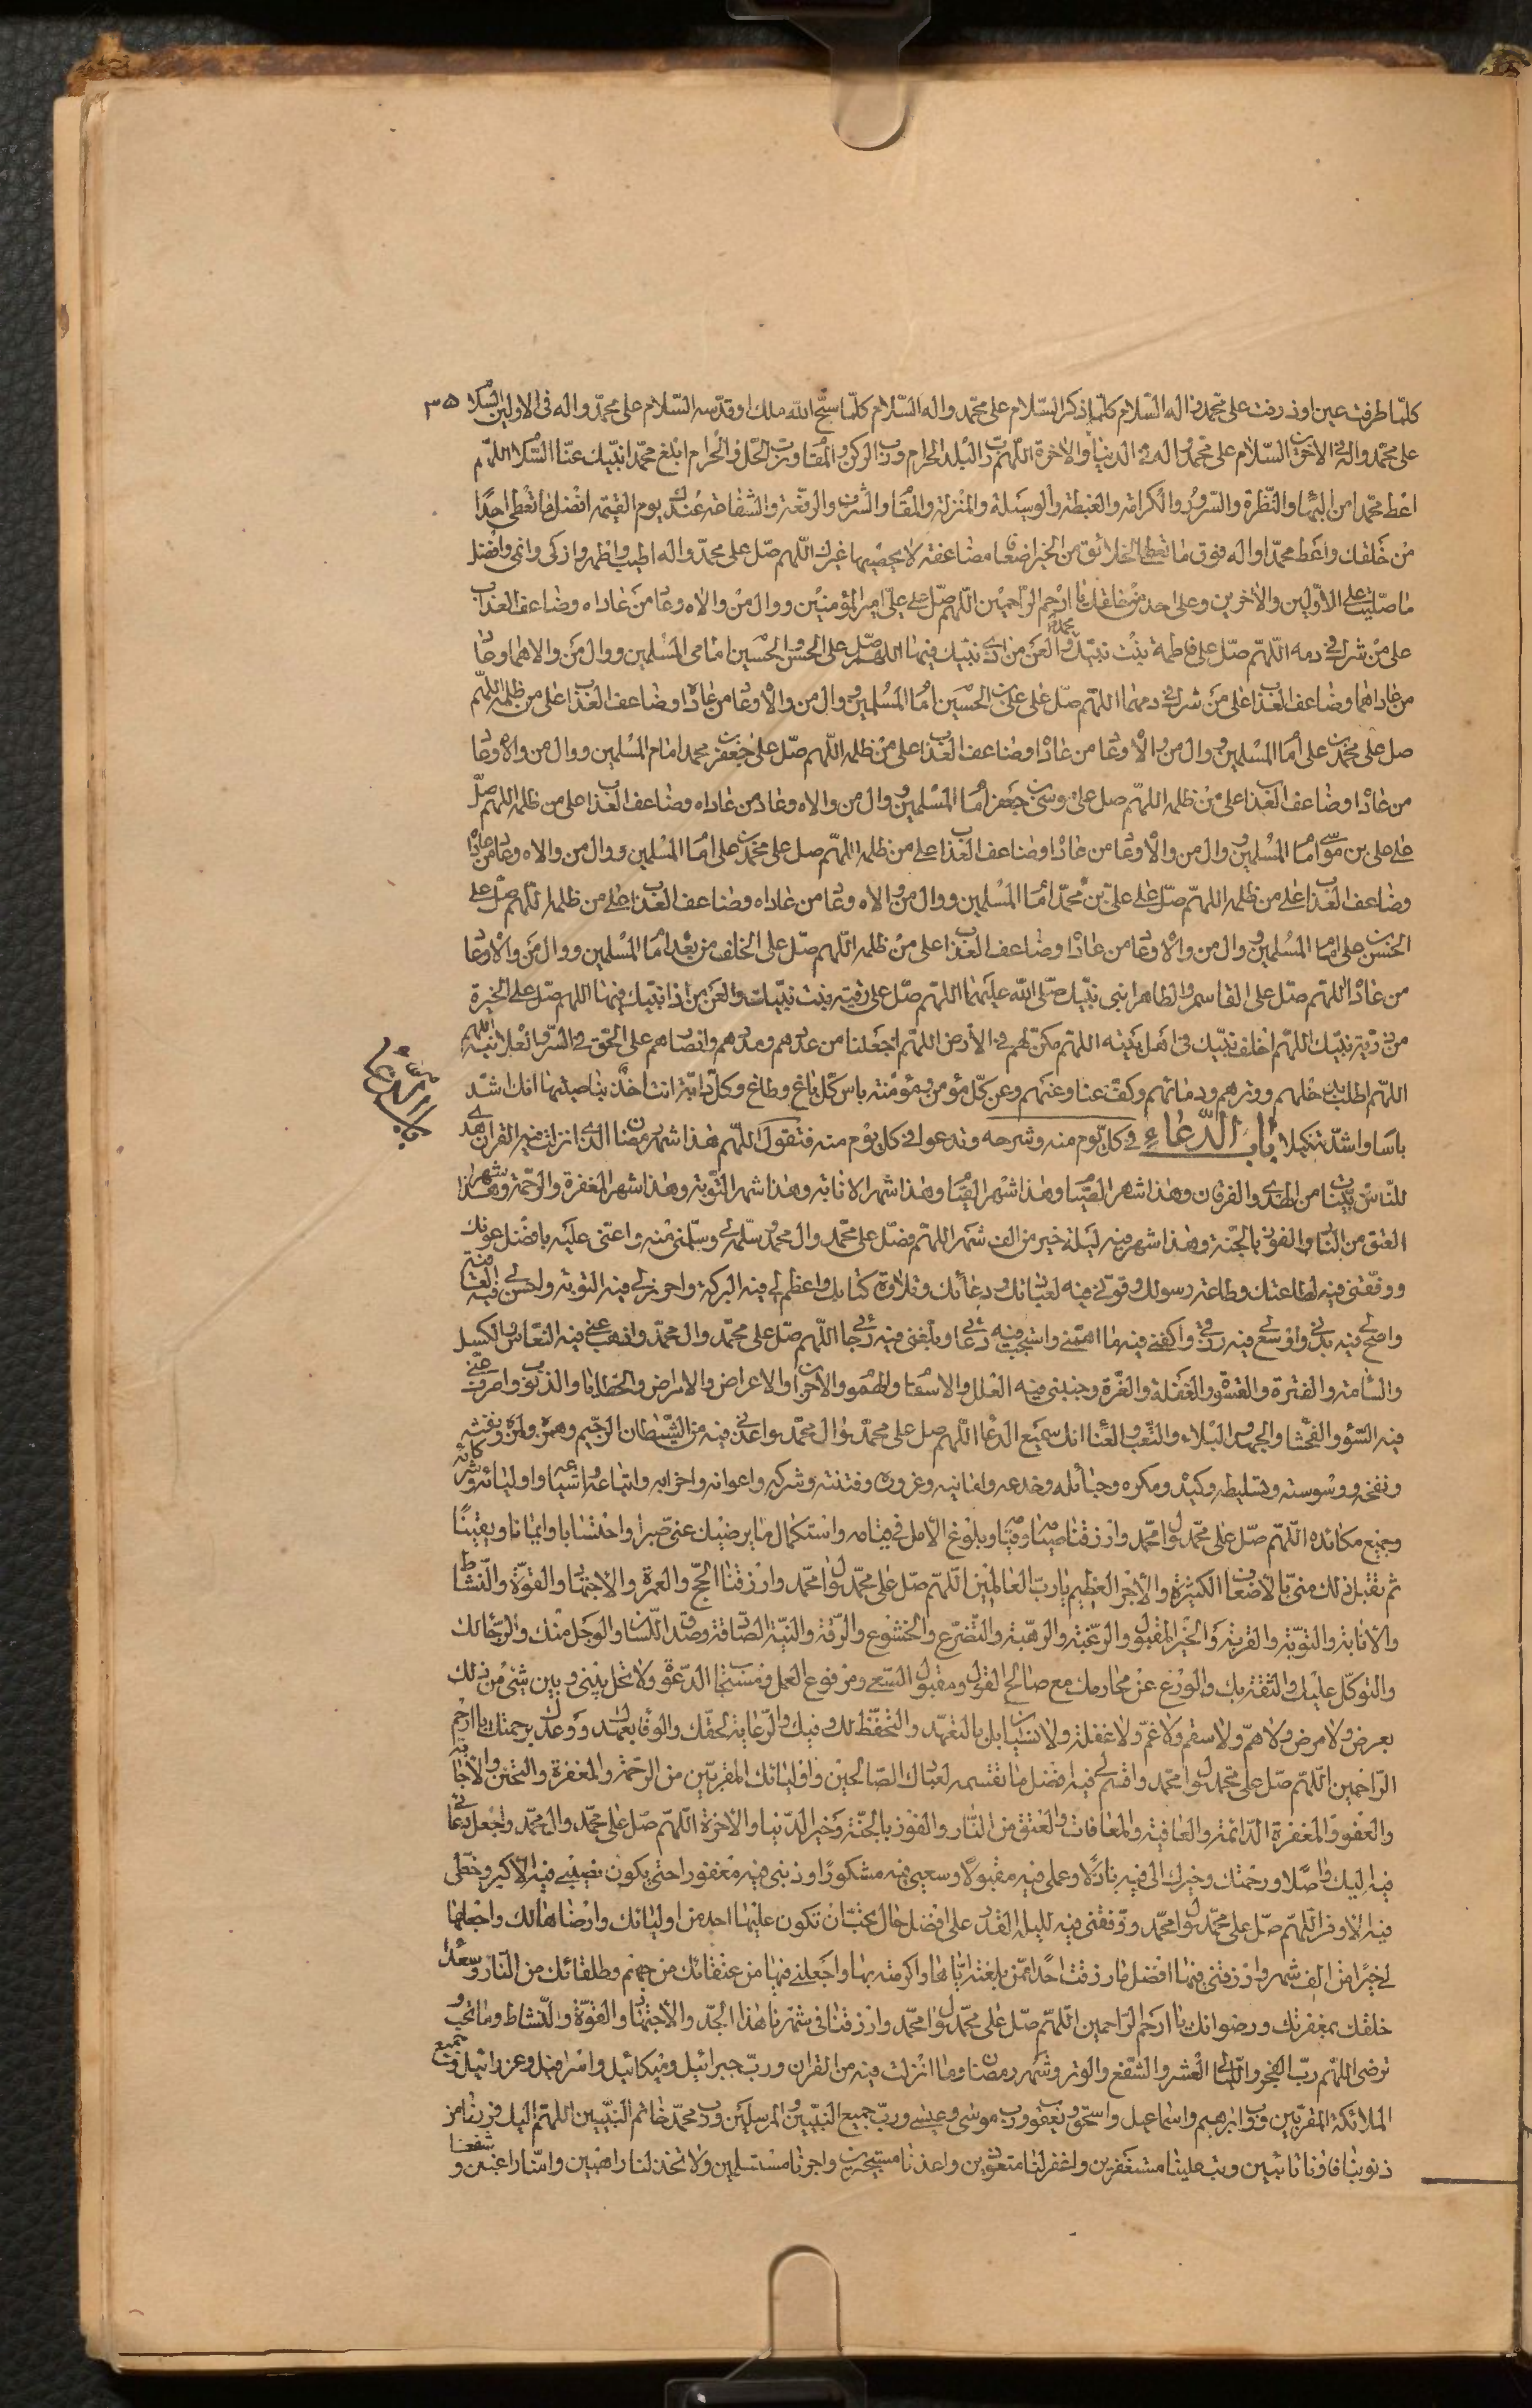 كلّما طرفت عين او ذرفت على محمد واله السّلام كلّما ذكر السّلام على محمّد واله السّلام كلّما سبّح الله ملك او قدّسه السّلام على محمّد واله فى الاولين السّلام ٣٥
على محمّد واله فى الاخرين السّلام على محمّد واله فى الدنيا والاخرة اللّهم ربّ البلد الحرام وربّ الركن والمقام وربّ الحلّ والحرام ابلغ محمّدا نبيّك عنّا السّلام اللّهم
اعط محمّدا من البهاء والنّظرة والسّرور والكرامة والغبطة والوسيلة والمنزلة والمقام والشّرف والرفعة والشفاعة عندك يوم القيمة افضل ما تعطى احدًا
من خلقك واعط محمّدا واله فوق ما تعطى الخلائق من الخير اضعافا مضاعفة لا يحصيها غيرك اللّهم صلّ على محمّد واله اطيب واطهر وازكى وانمى وافضل
ما صلّيت على الاوّلين والاخرين وعلى احد من خلقك يا ارحم الرّاحمين اللّهم صلّ على علىّ امير المؤمنين ووال من والاه وعاد من عاداه وضاعف العذاب
على من شرك فى دمه اللّهم صلّ على فاطمة بنت نبيّك محمّد والعن من اذى نبيّك فيها اللهم صلّ على الحسن والحسين امامى المسلمين ووال من والاهما وعاد
من عاداهما وضاعف العذاب على من شرك فى دمهما اللّهم صلّ على على بن الحسين امام المسلمين ووال من والاه وعاد من عاداه وضاعف العذاب على من ظلمه اللّهم
صل على محمّد بن على امام المسلمين ووال من والاه وعاد من عاداه وضاعف العذاب على من ظلمه اللّهم صلّ على جعفر بن محمد امام المسلمين ووال من والاه وعاد
من عاداه وضاعف العذاب على من ظلمه اللّهم صل على موسى بن جعفر امام المسلمين ووال من والاه وعاد من عاداه وضاعف العذاب على من ظلمه اللهم صلّ
على على بن موسى امام المسلمين ووال من والاه وعاد من عاداه وضاعف العذاب على من ظلمه اللّهم صل على محمّد بن على امام المسلمين ووال من والاه وعاد من عاداه
وضاعف العذاب على من ظلمه اللّهم صلّ على علىّ بن محمّد امام المسلمين ووال من والاه وعاد من عاداه وضاعف العذاب على من ظلمه اللّهم صلّ على
الحسن بن على امام المسلمين ووال من والاه وعاد من عاداه وضاعف العذاب على من ظلمه اللّهم صلّ على الخلف من بعده امام المسلمين ووال من والاه وعاد
من عاداه اللّهم صلّ على القاسم والطاهر ابنى نبيّك صلّى الله عليهما اللّهم صلّ على رقية بنت نبيّك والعن من اذا نبيّك فيها اللهم صلّ على الخيرة
من ذرّية نبيّك اللّهم اخلف نبيّك فى اهل بيته اللّهم مكّن لهم فى الارض اللّهم اجعلنا من عددهم ومددهم وانصارهم على الحق فى السّر والعلانية اللهم
اللّهم اطلب بذحلهم ووترهم ودمائهم وكفّ عنا وعنهم وعن كلّ مؤمن ومؤمنة باس كلّ باغ وطاغ وكلّ دابّة انت اخذ بناصيتها انك اشد
باسا واشدّ تنكيلا باب الدّعاء فى كلّ يوم منه وشرحه وتدعوا فى كل يوم منه فتقول اللّهم هذا شهر رمضان الذى انزلت فيه القران هدى
للنّاس وبيّنات من الهدى والفرقان وهذا شهر الصّيام وهذا شهر القيام وهذا شهر الانابة وهذا شهر التّوبة وهذا شهر المغفرة والرّحمة وهذا شهر
العتق من النّار والفوز بالجنّة وهذا شهر فيه ليلة خير من الف شهر اللّهم فصلّ على محمّد وال محمّد وسلّمه لى وسلّمنى منه واعنّى عليه بافضل عونك
ووفّقنى فيه لطاعتك وطاعة رسولك وقوّنى فيه لعبادتك ودعائك وتلاوة كتابك واعظم لى فيه البركة واحرز لى فيه التوبة واحسن لى فيه العافية
واصحّ لى فيه بدنى واوسع لى فيه رزقى واكفنى فيه ما اهمّنى واستجب فيه دعائى وبلّغنى فيه رجائى اللّهم صلّ على محمّد وال محمّد واذهب عنى فيه النّعاس والكسل
والسّامة والفترة والقسوة والغفلة والغرّة وجنّبنى فيه العلل والاسقام والهموم والاحزان والاعراض والامراض والخطايا والذنوب واصرف عنّى
فيه السّؤ والفحشاء والجهد والبلاء والتّعب والعنا انك سميع الدّعا اللّهم صل على محمّد وال محمّد واعذنى فيه من الشّيطان الرّجيم وهمزه ولمزه ونفثه
ونفخه ووسوسته وتسليطه وكيده ومكره وحبائله وخدعه وامانيه وغروره وفتنته وشركه واعوانه واحزابه واتباعه واشياعه واوليائه وشركائه
وجميع مكائده اللّهم صلّ على محمّد وال محمّد وارزقنا صيامه وقيامه وبلوغ الامل فى قيامه واستكمال ما يرضيك عنّى صبرا واحتسابا وايمانا ويقينًا
ثم تقبّل ذلك منّى بالاضعاف الكثيرة والاجر العظيم يا ربّ العالمين اللّهم صلّ على محمّد وال محمّد وارزقنا الحجّ والعمرة والاجتهاد والقوّة والنّشاط
والانابة والتوبة والقربة والخير المقبول والرّغبة والرهبة والتّضرّع والخشوع والرّقة والنيّة الصّادقة وصدق اللّسان والوجل منك والرّجاء لك
والتوكّل عليك والثقة بك والورع عن محارمك مع صالح القول ومقبول السّعى ومرفوع العمل ومستجاب الدّعوة ولا تحل بينى وبين شئ من ذلك
بعرض ولا مرض ولا همّ ولا سقم ولا غمّ ولا غفلة ولا نسيان بل بالتعهّد والتحفّظ لك وفيك والرّعاية لحقّك والوفا بعهدك ووعدك برحمتك يا ارحم
الرّاحمين اللّهم صلّ على محمّد وال محمّد واقسم لى فيه افضل ما تقسمه لعبادك الصّالحين واوليائك المقربّين من الرّحمة والمغفرة والتحنّن والاجابة
والعفو والمغفرة الدّائمة والعافية والمعافات والعتق من النّار والفوز بالجنّة وخير الدّنيا والاخرة اللّهم صلّ على محمّد وال محمّد وتجعل دعائى
فيه اليك واصلا ورحمتك وخيرك الىّ فيه نازلًا وعملى فيه مقبولًا وسعيى فيه مشكورًا وذنبى فيه مغفورا حتى يكون نصيبى فيه الاكبر وحظّى
فيه الاوفر اللّهم صلّ على محمّد وال محمّد ووفّقنى فيه لليلة القدر على افضل حال تحبّ ان تكون عليها احد من اوليائك وارضاها لك واجعلها
لى خيرًا من الف شهر وارزقنى فيها افضل ما رزقت احدًا ممّن بلغته ايّاها واكرمته بها واجعلنى فيها من عتقائك من جهنم وطلقائك من النّار وسعداء
خلقك بمغفرتك ورضوانك يا ارحم الرّاحمين اللّهم صلّ على محمّد وال محمّد وارزقنا فى شهرنا هذا الجدّ والاجتهاد والقوّة والنّشاط وما تحبّ و
ترضى اللّهم ربّ الفجر والليالى العشر والشّفع والوتر وشهر رمضان وما انزلت فيه من القران وربّ جبرائيل وميكائيل واسرافيل وعزرائيل وجميع
الملائكة المقربّين وربّ ابراهيم واسماعيل واسحق ويعقوب وربّ موسى وعيسى وربّ جميع النبيّين والمرسلين وربّ محمّد خاتم النبيّين
ذنوبنا تائبين وتب علينا مستغفرين واغفر لنا متعوّذين واعذنا مستجيرين واجرنا مستسلمين ولا تخذلنا راهبين وامنّا راغبين و شفعنا
باب الدّعاء